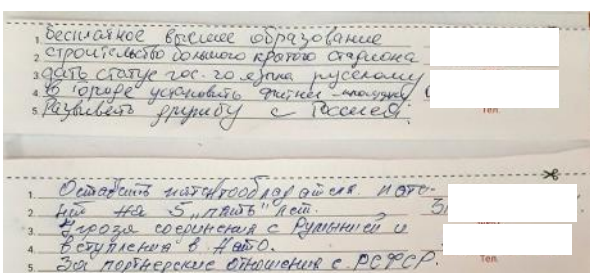 1. бесплатное высшее образование
2. строительство большого крытого стадиона
3. дать статус гос-го языка русскому
4. в городе установить фитнес-площадки
5. Развивать дружбу с Россией.
тел.
1. Оставить
2. на 5 "пять" лет.
3. Угроза соединения с Румынией и
4. вступления в Нато.
5. За партнерские отношения с РСФСР.
Тел.